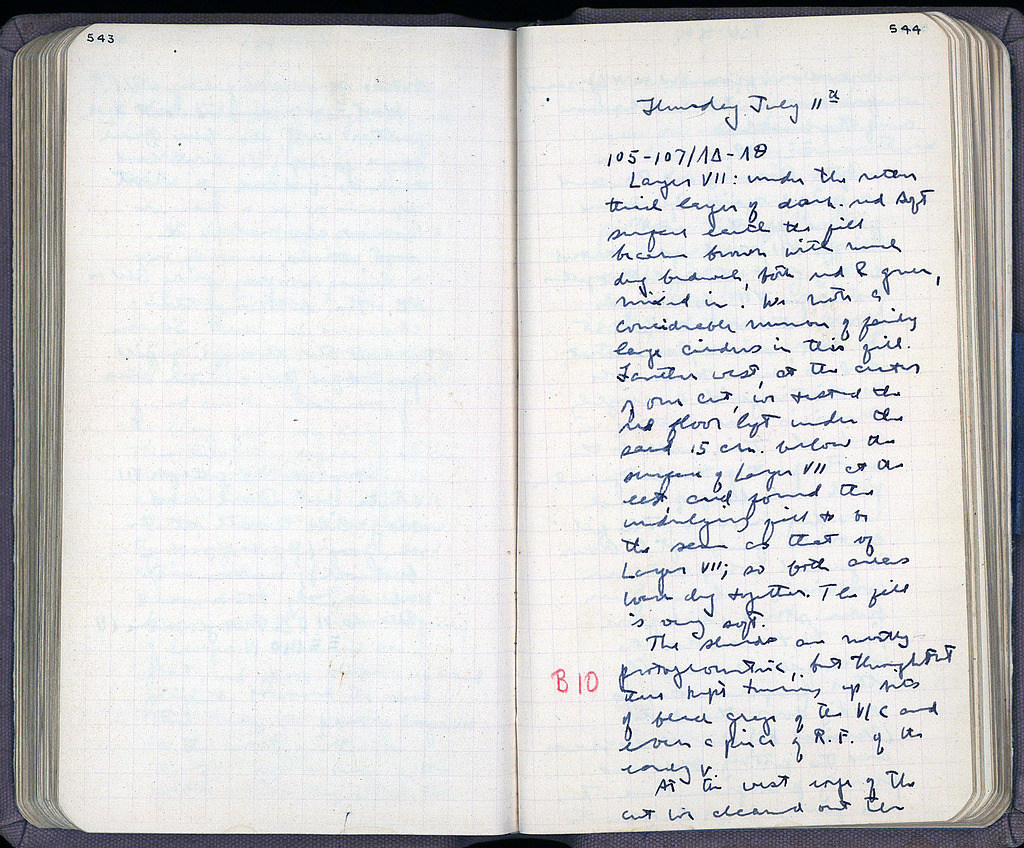 543
544
Thursday July 11th
105-107/ΛΔ-ΛΘ
Layer VII: under the
third layer of dark red soft
surface earth the fill
became brown with much
dug bedrock, both red & green,
mixed in. We note a
considerable number of fairly
large cinders in this fill.
Farther west, at the center
of our cut, we tested the
red floor left under the
sand 15 cm. below the
surface of Layer VII at the
east, and found the
underlying fill to be
the same as that of
Layer VII; so both areas
were dug together. The fill
is very soft.
The sherds are mostly
protogeometric, but throughout
B 10
there kept turning up bits
of black glaze of the V/C and
even a piece of R.F. of the
early V.
At the west edge of the
cut we cleaned out the